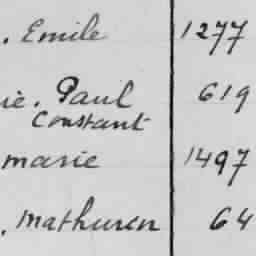 . Emile 1277
ie. Paul 619
Constant
marie 1497
. Mathuren 64